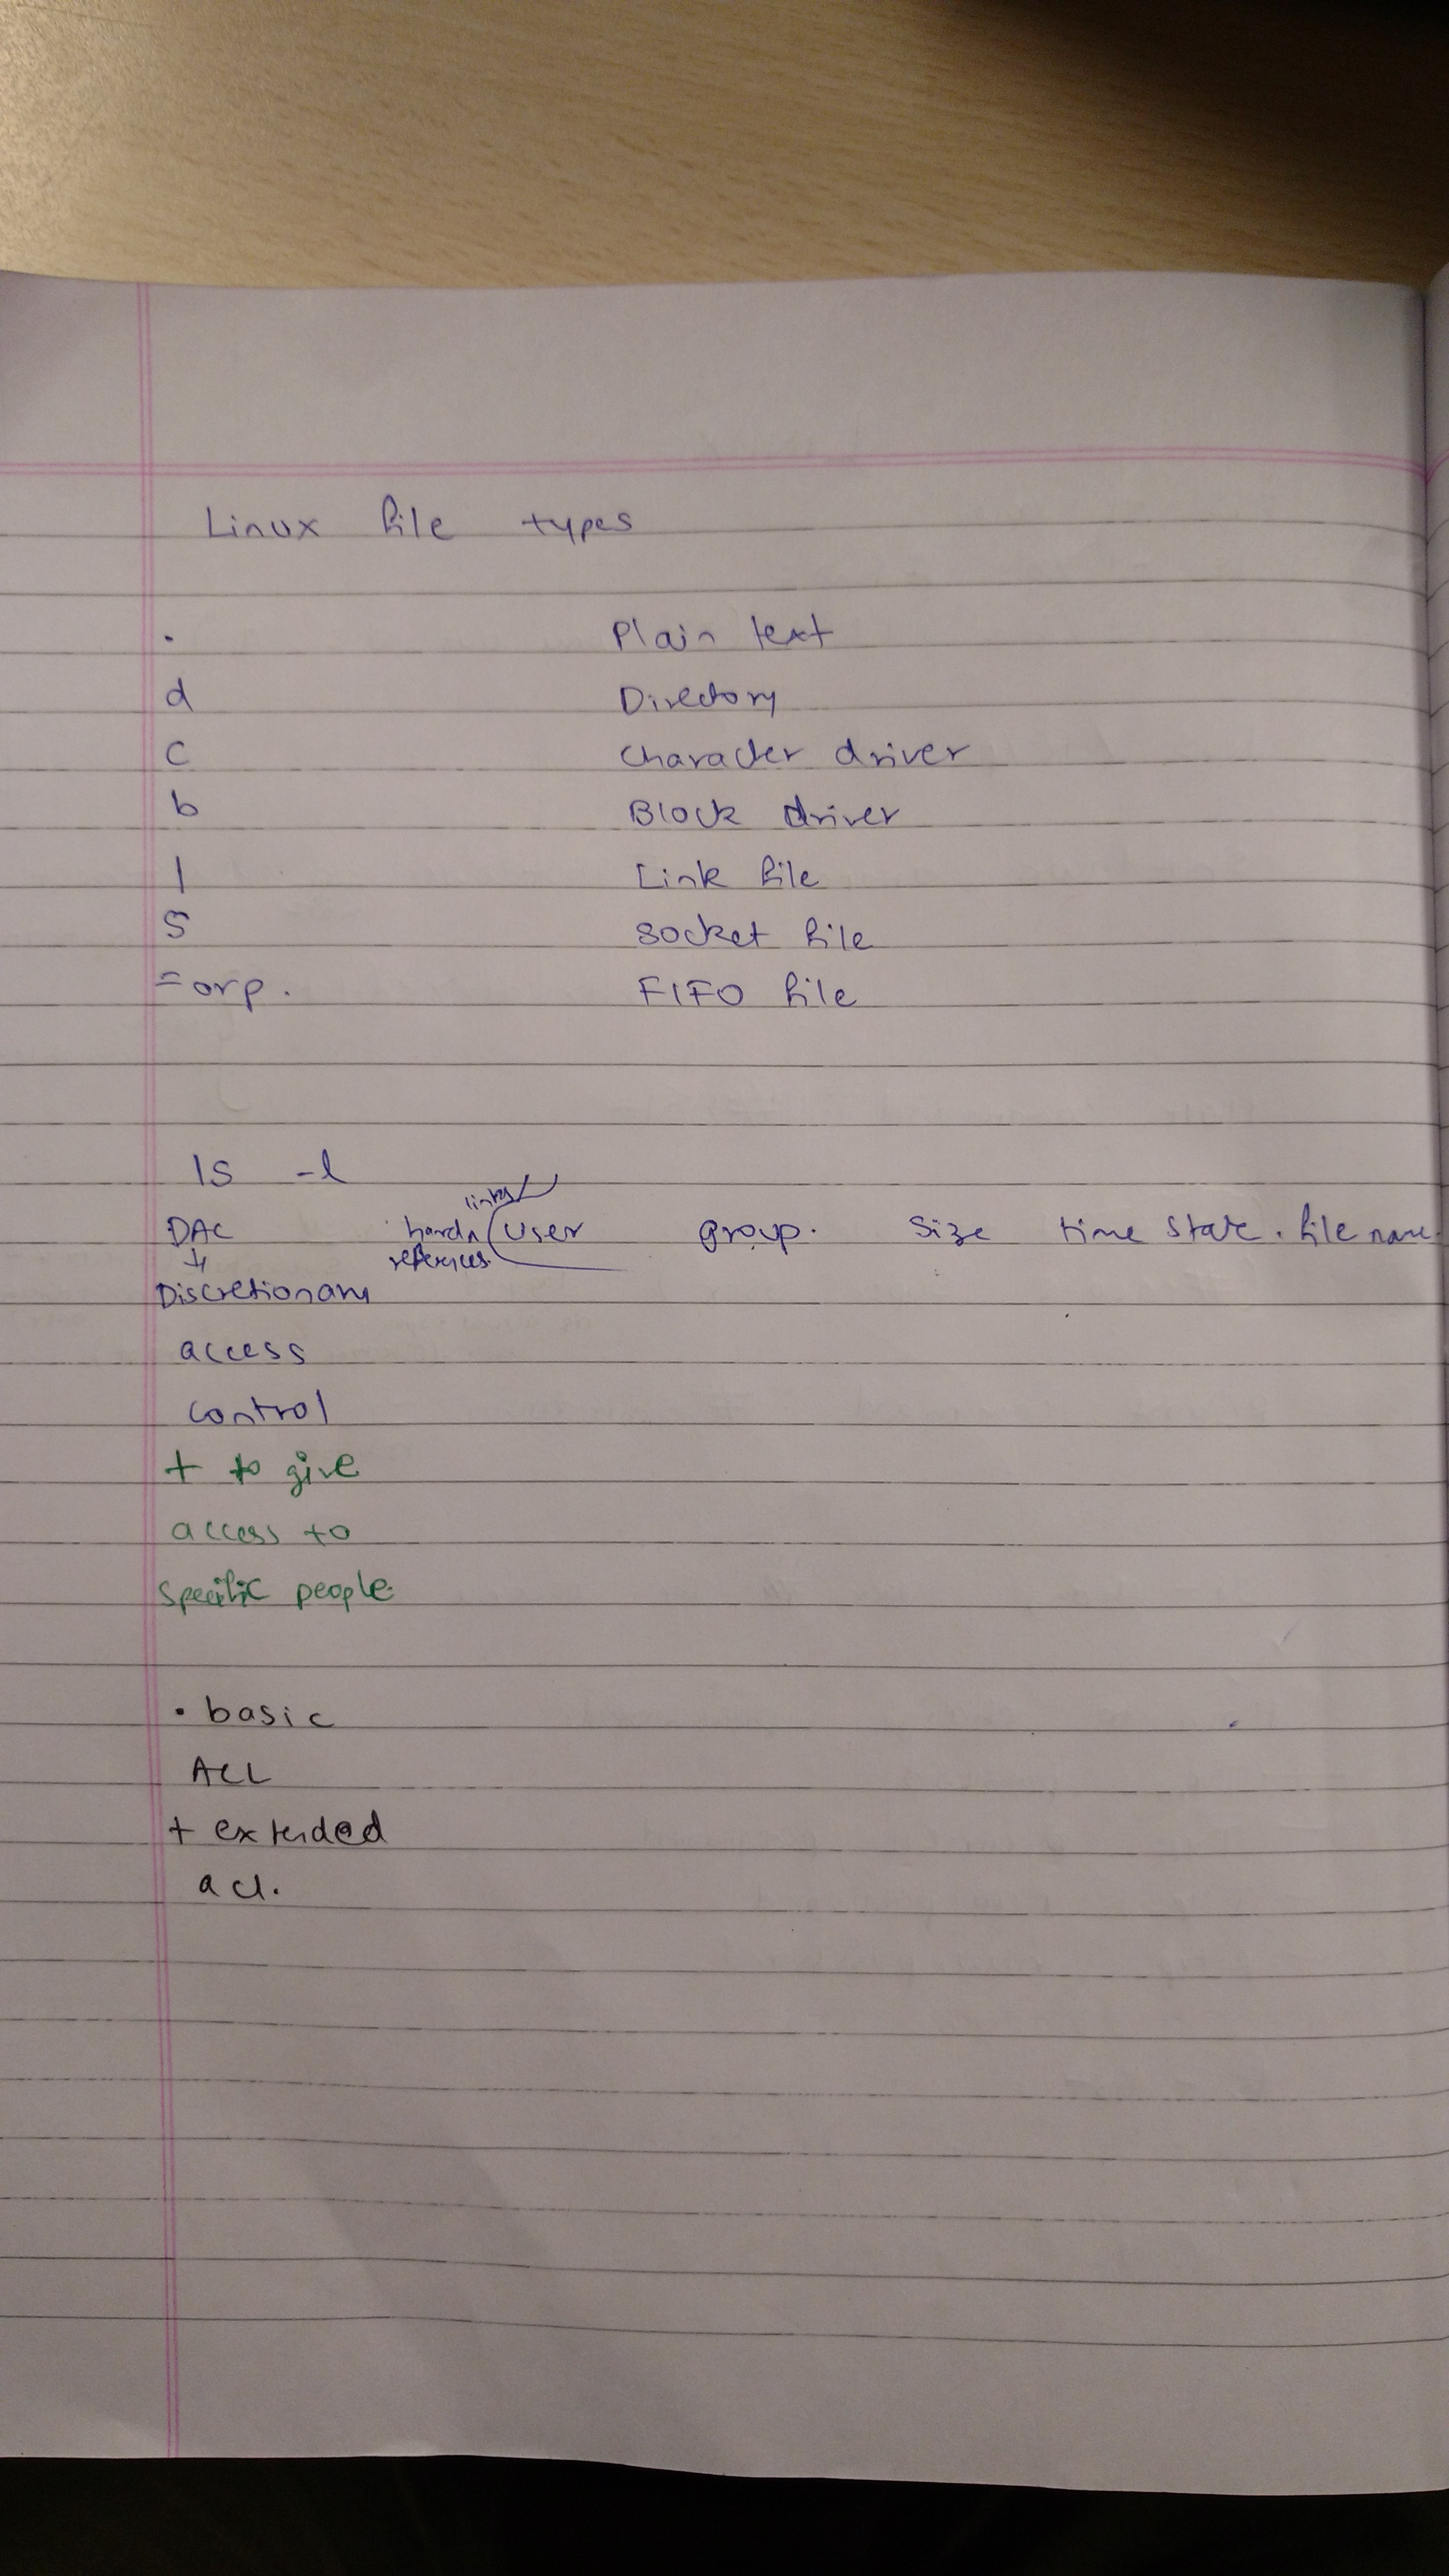 Linux file types
. Plain text
d Directory
c Character driver
b Block driver
l Link file
s socket file
= or p. FIFO file
ls -l
links
DAC hard user group. Size time State. file name.
references
Discretionary
access
control
+ to give
access to
specific people.
• basic
ACL
+ extended
acl.